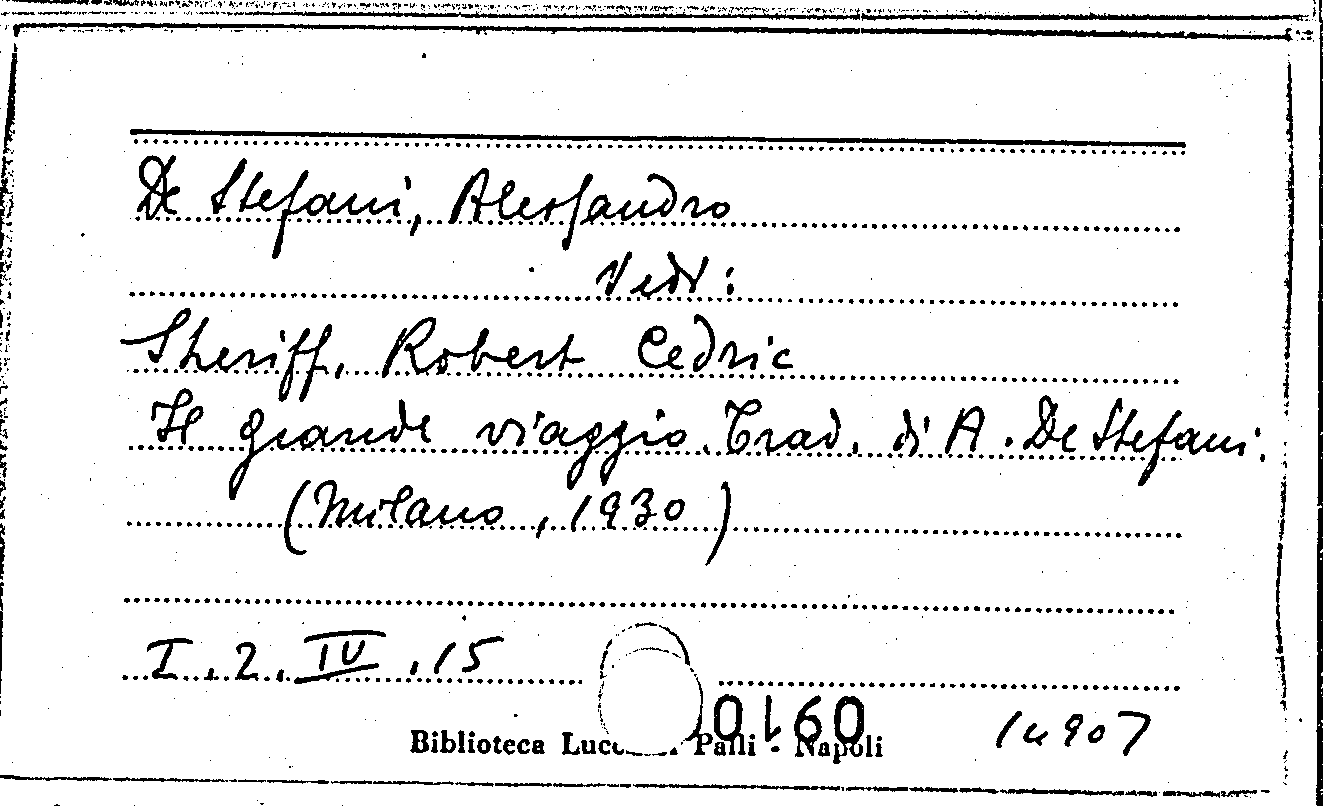 De Stefani, Alessandro
Vedi:
Sheriff, Robert Cedric
Il grande viaggio. Trad. di A. De Stefani.
(Milano, 1930)
I. 2. IV. 15
09160
Biblioteca Palli - Napoli
14907